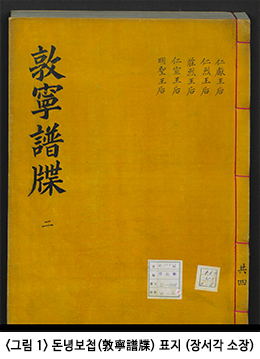 敦寧譜牒
二
仁獻王后
仁烈王后
莊烈王后
仁宣王后
明聖王后
共四
<그림 1> 돈녕보첩(敦寧譜牒) 표지 (장서각 소장)